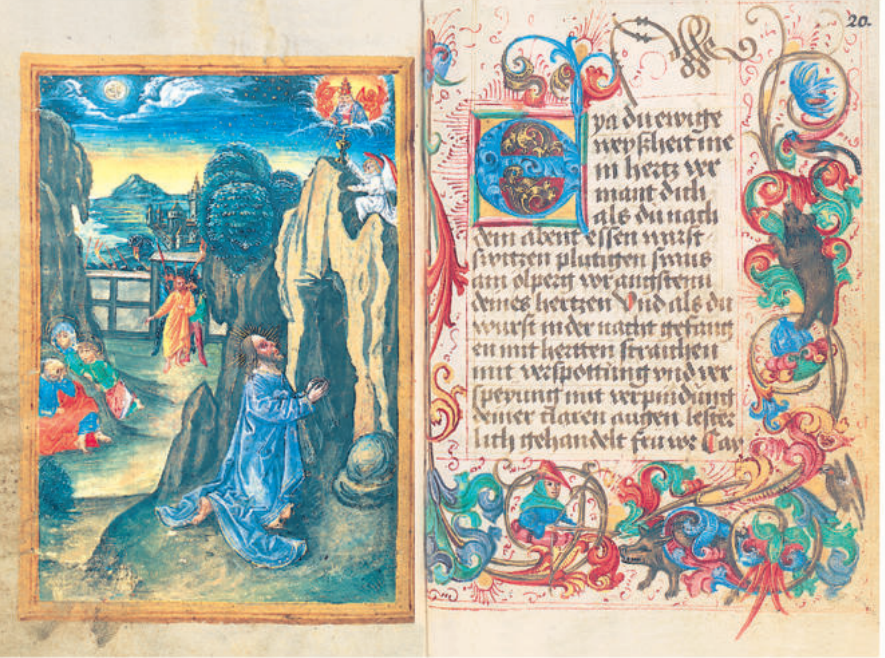 20.
Eya du ewige
weyßheit me
in hertz ver
mant dich
als du nach
dem abent essen wurst
switzen plutigen swais
am olperg vor angsten
deines hertzen Vnd als du
wurst in der nacht gefang
en mit hertten straichen
mit verspottung vnd ver
speyung mit verpindung
deiner claren augen lester
lich gehandelt fru vor Cay